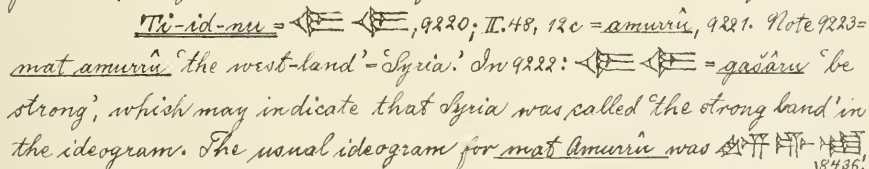 Ti-id-nu = 𒄥 𒄥, 9220; II.48, 12c = amurrû, 9221. Note 9223=
mat amurrû 'the west-land' = 'Syria.' In 9222: 𒄥 𒄥 = gašâru 'be
strong', which may indicate that Syria was called 'the strong land' in
the ideogram. The usual ideogram for mat Amurrû was
18436!